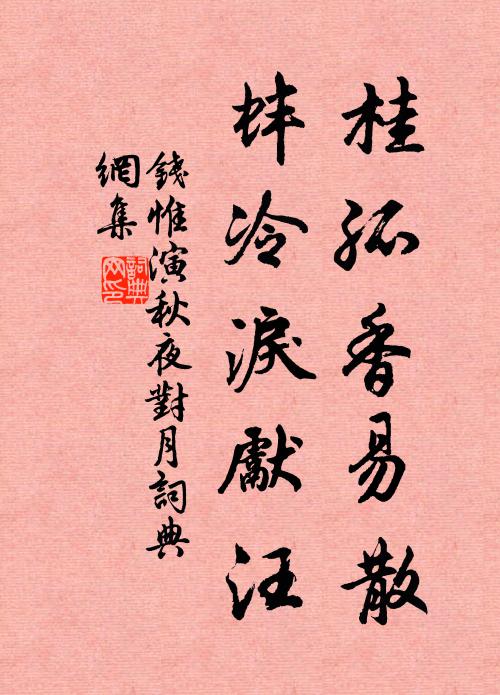 桂孤香易散
蚌冷淚獻汪
錢惟演秋夜對月詞典
網集
詞典網印